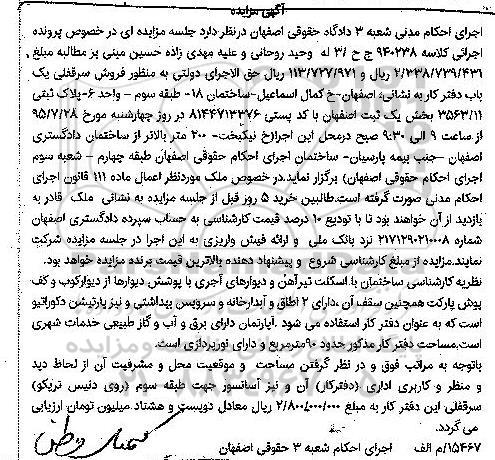 آگهی مزایده
اجرای احکام مدنی شعبه ۳ دادگاه حقوقی اصفهان درنظر دارد جلسه مزایده ای در خصوص پرونده
اجرائی کلاسه ۹۴۰۲۳۸ ج ح /۳ له وحید روحانی و علیه مهدی زاده حسین مینی بر مطالبه مبلغ
۲/۲۳۸/۷۳۹/۴۳۱ ریال و ۱۱۳/۷۲۷/۹۷۱ ریال حق الاجرای دولتی به منظور فروش سرقفلی یک
باب دفتر کار به نشانی: اصفهان-خ کمال اسماعیل-ساختمان ۱۸- طبقه سوم - واحد ۶-پلاک ثبتی
۳۵۶۳/۱۱ بخش یک ثبت اصفهان با کد پستی ۸۱۴۴۷۱۳۳۷۶ در روز چهارشنبه مورخ ۹۵/۷/۲۸
از ساعت ۹ الی ۹:۳۰ صبح درمحل این اجرا(خ نیکبخت- ۲۰۰ متر بالاتر از ساختمان دادگستری
اصفهان -جنب بیمه پارسیان- ساختمان اجرای احکام حقوقی اصفهان طبقه چهارم - شعبه سوم
اجرای احکام حقوقی اصفهان) برگزار نماید.در خصوص ملک موردنظر اعمال ماده ۱۱۱ قانون اجرای
احکام مدنی صورت گرفته است.طالبین خرید ۵ روز قبل از جلسه مزایده به نشانی ملک قادر به
بازدید از آن خواهند بود تا با تودیع ۱۰ درصد قیمت کارشناسی به حساب سپرده دادگستری اصفهان
شماره ۲۱۷۱۲۹۰۲۱۰۰۰۸ نزد بانک ملی و ارائه فیش واریزی به این اجرا در جلسه مزایده شرکت
نمایند.مزایده از مبلغ کارشناسی شروع و پیشنهاد دهنده بالاترین قیمت برنده مزایده خواهد بود.
نظریه کارشناسی ساختمان:با اسکلت تیرآهن و دیوارهای آجری با پوشش دیوارها از دیوارکوب و کف
پوش پارکت همچنین سقف آن ،دارای ۲ اطاق و آبدارخانه و سرویس بهداشتی و نیز پارتیشن دکوراتیو
است که به عنوان دفتر کار استفاده می شود .آپارتمان دارای برق و آب و گاز طبیعی خدمات شهری
است.مساحت دفتر کار مذکور حدود ۹۰مترمربع و دارای نورپردازی است.
باتوجه به مراتب فوق و در نظر گرفتن مساحت و موقعیت محل و مشرفیت آن از لحاظ دید
و منظر و کاربری اداری (دفترکار) آن و نیز آسانسور جهت طبقه سوم (روی دنیس تریکو)
سرقفلی این دفتر کار به مبلغ ۲/۸۰۰/۰۰۰/۰۰۰ ریال معادل دویست و هشتاد میلیون تومان ارزیابی
می گردد.
۱۵۴۶۷/م الف اجرای احکام شعبه ۳ حقوقی اصفهان